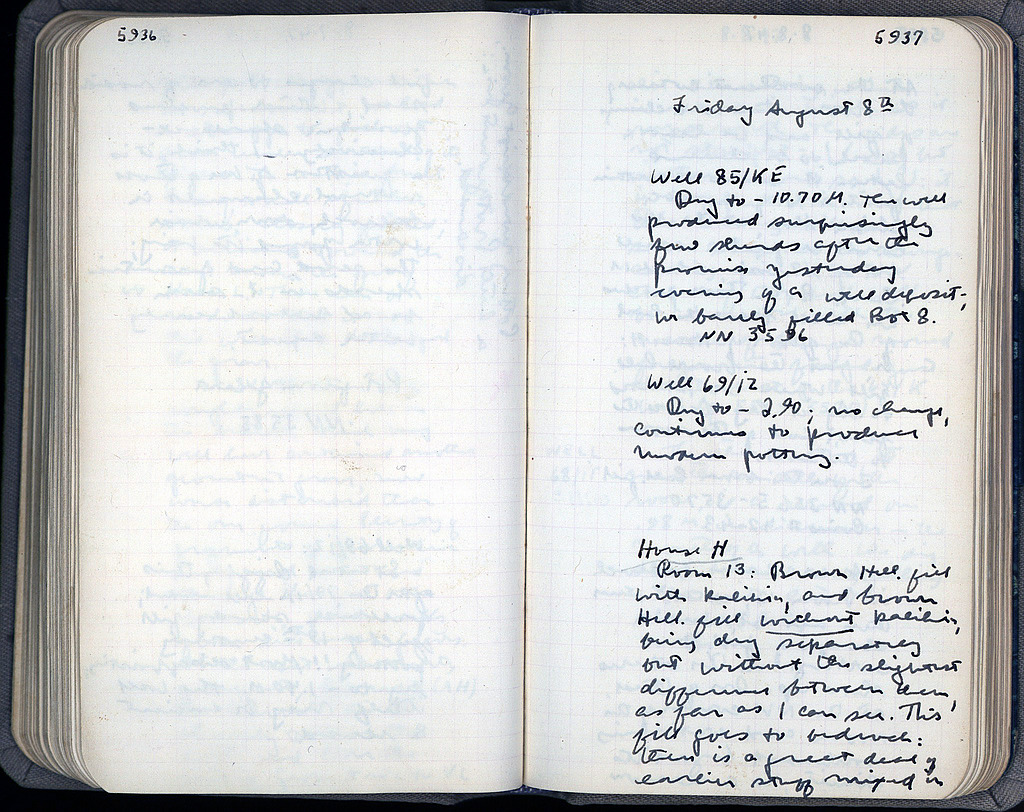 5936
5937
Friday August 8th
Well 85/KE
Dug to - 10.70 M. The well
produced surprisingly
few sherds after the
promise yesterday
evening of a well deposit;
we barely filled Box 8.
NN 3596
Well 69/IZ
Dug to - 2.90; no change,
continues to produce
modern pottery.
House H
Room 13: Brown Hell. fill
with kalibia, and brown
Hell. fill without kalibia,
being dug separately
but without the slightest
difference between them,
as far as I can see. This
fill goes to bedrock:
there is a great deal of
earlier stuff mixed in